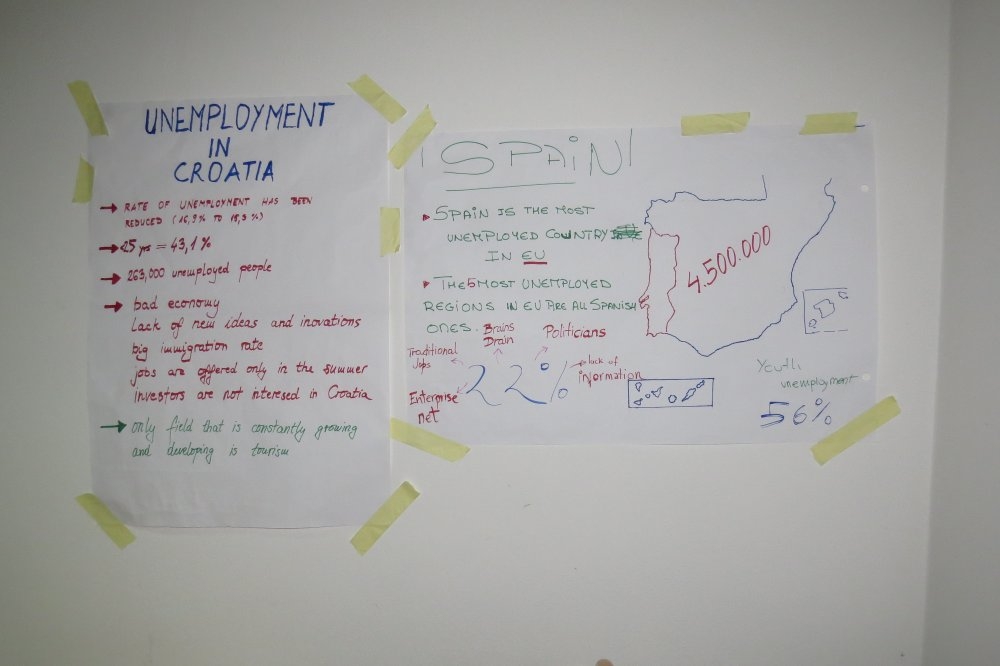 UNEMPLOYMENT
IN
CROATIA
→ RATE OF UNEMPLOYMENT HAS BEEN
REDUCED (16,9% TO 15,3%)
→ <25 yrs = 43,1%
→ 263,000 unemployed people
→ bad economy
Lack of new ideas and inovations
big immigration rate
jobs are offered only in the summer
Investors are not interesed in Croatia
→ only field that is constantly growing
and developing is tourism
SPAiN
SPAiN IS THE MOST
UNEMPLOYED COUNTRY
IN EU
THE 5 MOST UNEMPLOYED
REGIONS IN EU ARE ALL SPANISH
ONES.
4.500.000
Brains
Drain
Politicians
Traditional
Jobs
22%
lack of
information
Enterprise
net
Youth
unemployment
56%